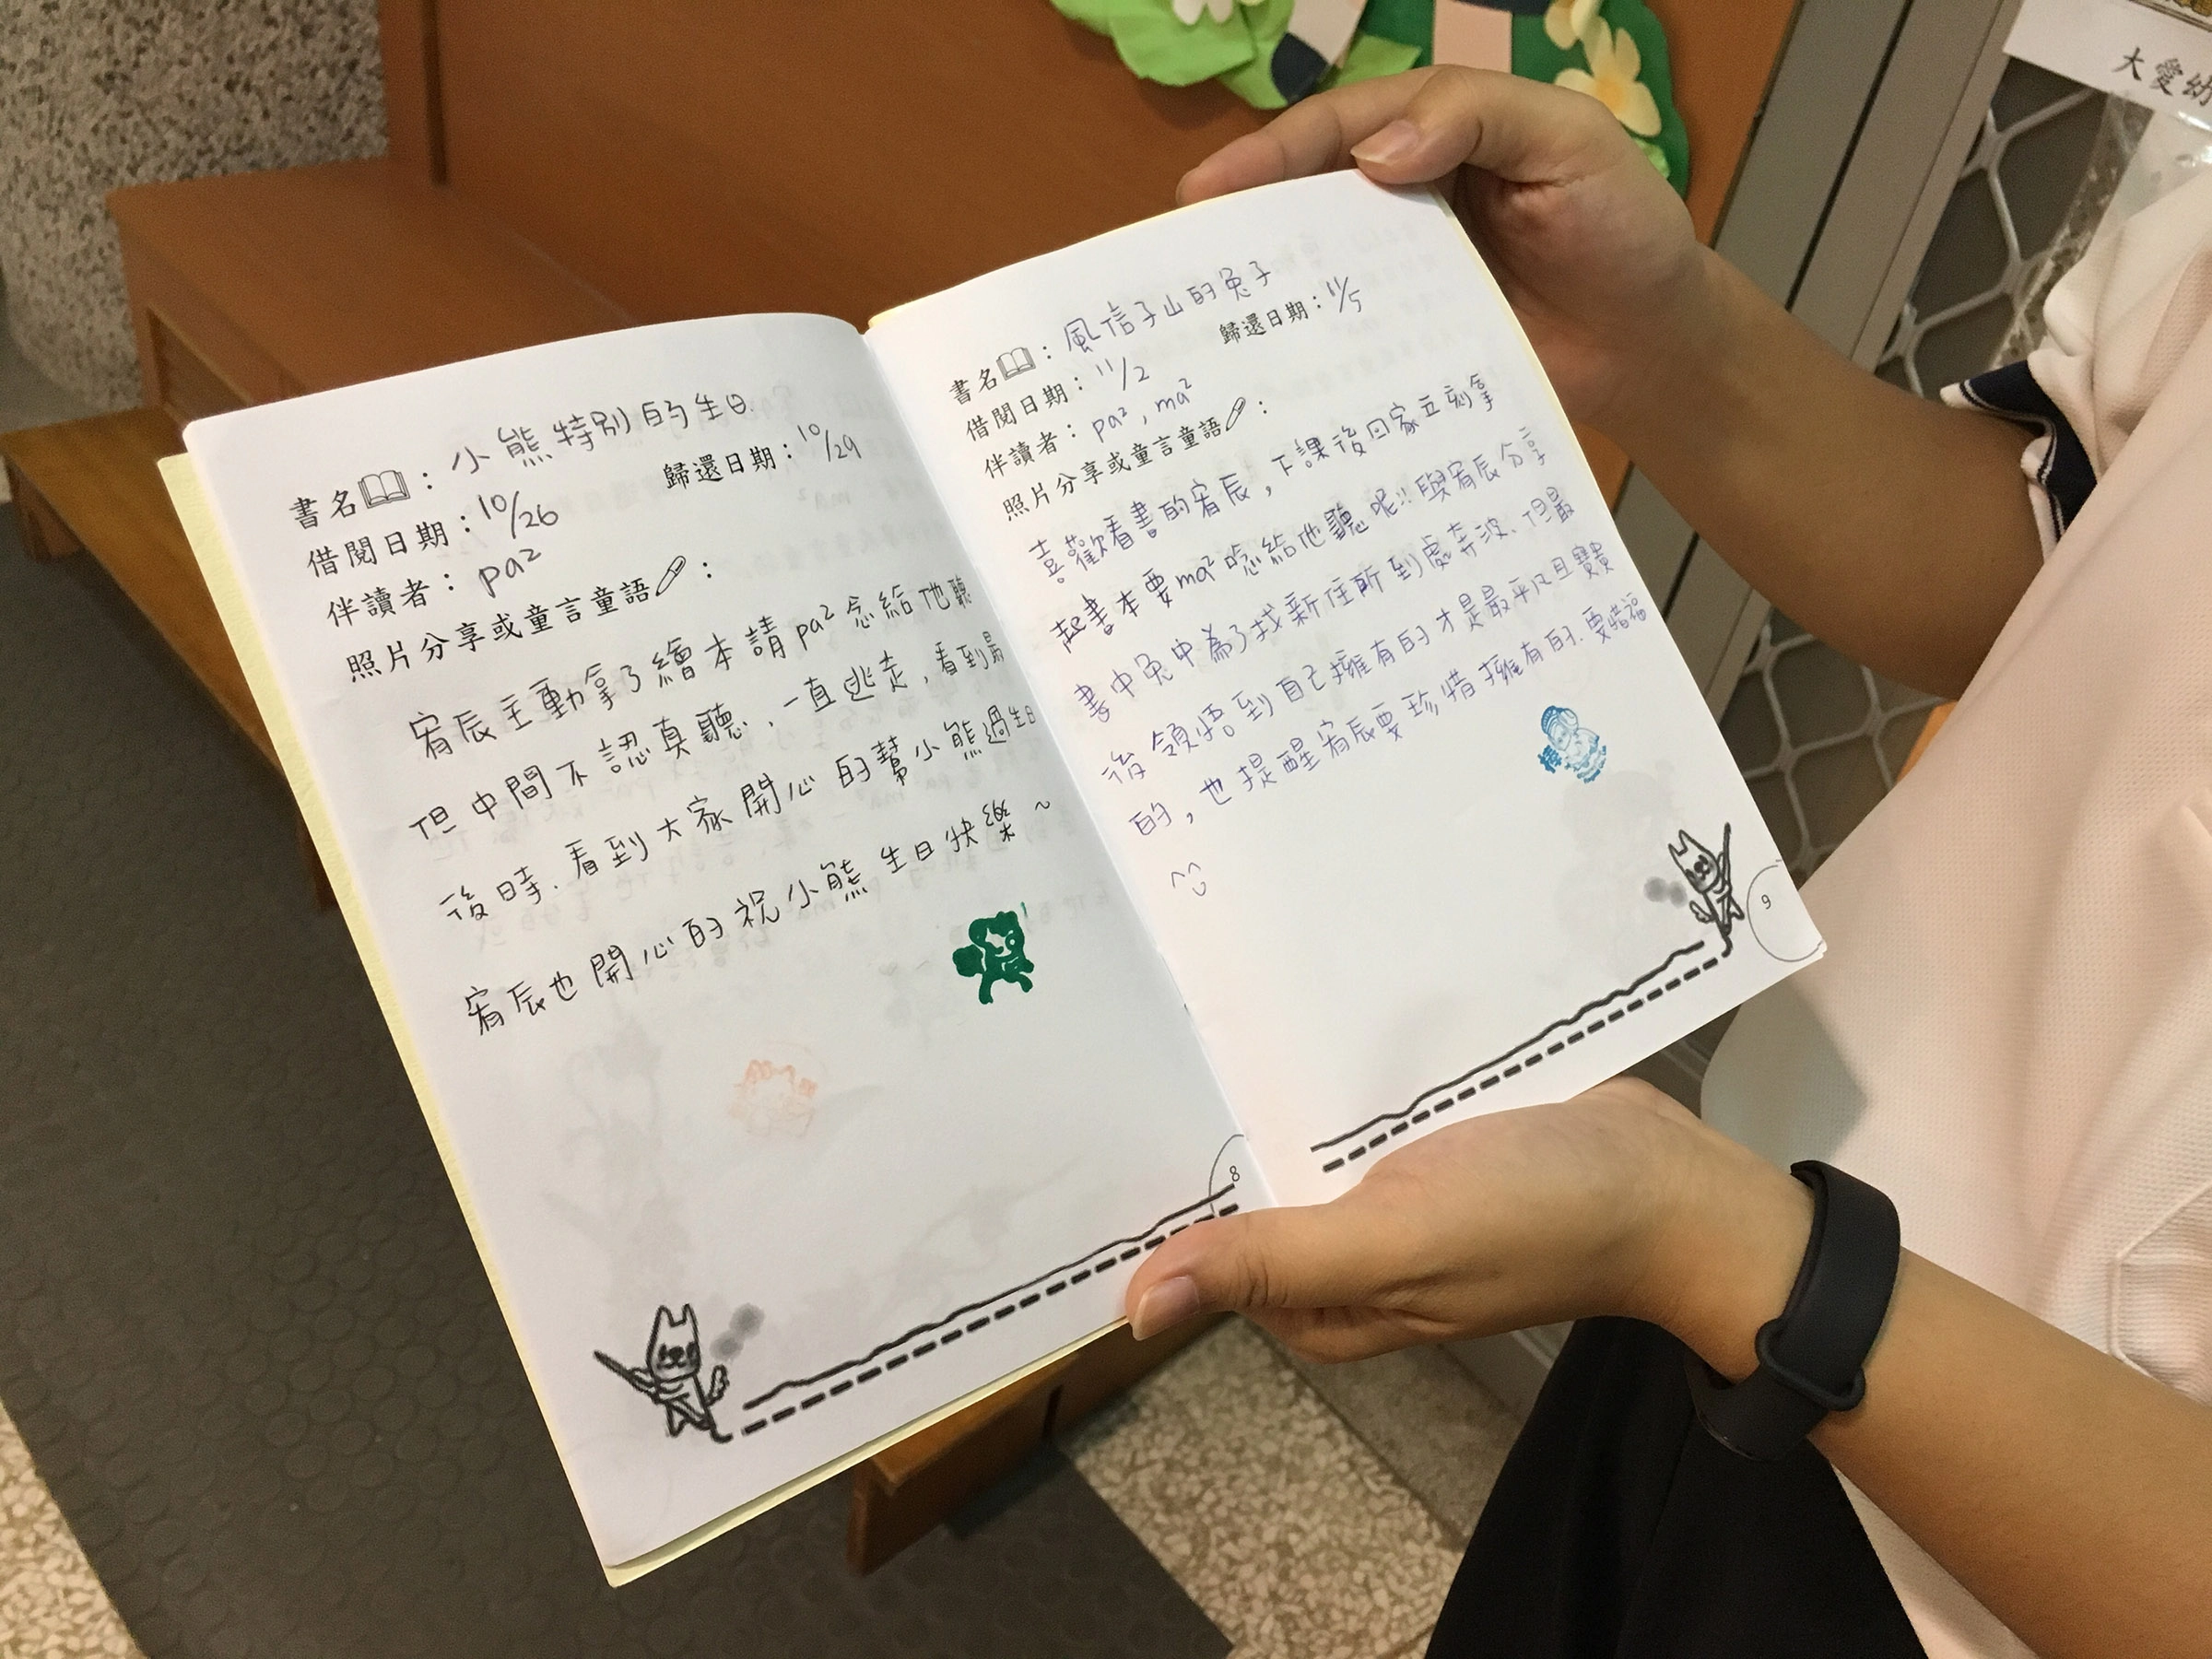 書名：小熊特別的生日
借閱日期：10/26 歸還日期：10/29
伴讀者：pa²
照片分享或童言童語：
宥辰主動拿了繪本請pa²念給他聽
但中間不認真聽，一直逃走，看到最
後時，看到大家開心的幫小熊過生日
宥辰也開心的祝小熊生日快樂~
8
書名：風信子山的兔子
借閱日期：11/2 歸還日期：11/5
伴讀者：pa²，ma²
照片分享或童言童語：
喜歡看書的宥辰，下課後回家立刻拿
起書本要ma²唸給他聽呢!!與宥辰分享
書中兔中為了找新住所到處奔波、但最
後領悟到自己擁有的才是最平凡且寶貴
的，也提醒宥辰要珍惜擁有的.要惜福
^^
棒
9
大愛幼